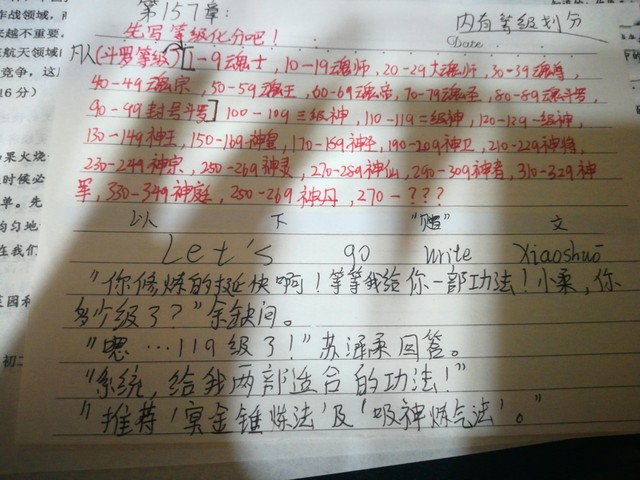 第157章：
内有等级划分
先写等级化分吧！
Date
凡人(斗罗等级)[1-9魂士，10-19魂师，20-29大魂师，30-39魂尊，
40-49魂宗，50-59魂王，60-69魂帝，70-79魂圣，80-89魂斗罗，
90-99封号斗罗] 100-109三级神，110-119二级神，120-129一级神，
130-149神王，150-169神皇，170-189神，190-209神卫，210-229神将，
230-249神宗，250-269神灵，270-289神仙，290-309神者，310-329神
军，330-349神庭，250-269神丹，270-？？？
以 下 "赠" 文
Let's go write Xiaoshuō
"你修炼的挺快啊！等等我给你一部功法！小柔，你
多少级了？"余缺问。
"嗯…119级了！"苏涵柔回答。
"系统，给我两部适合的功法！"
"推荐'冥金锤炼法'及'吸神炼气法'。"
作战领域，
越不重要，
航天领域
竞争，这
16分）
如果火烧
时候必
单。先
均匀地
在我们
初二